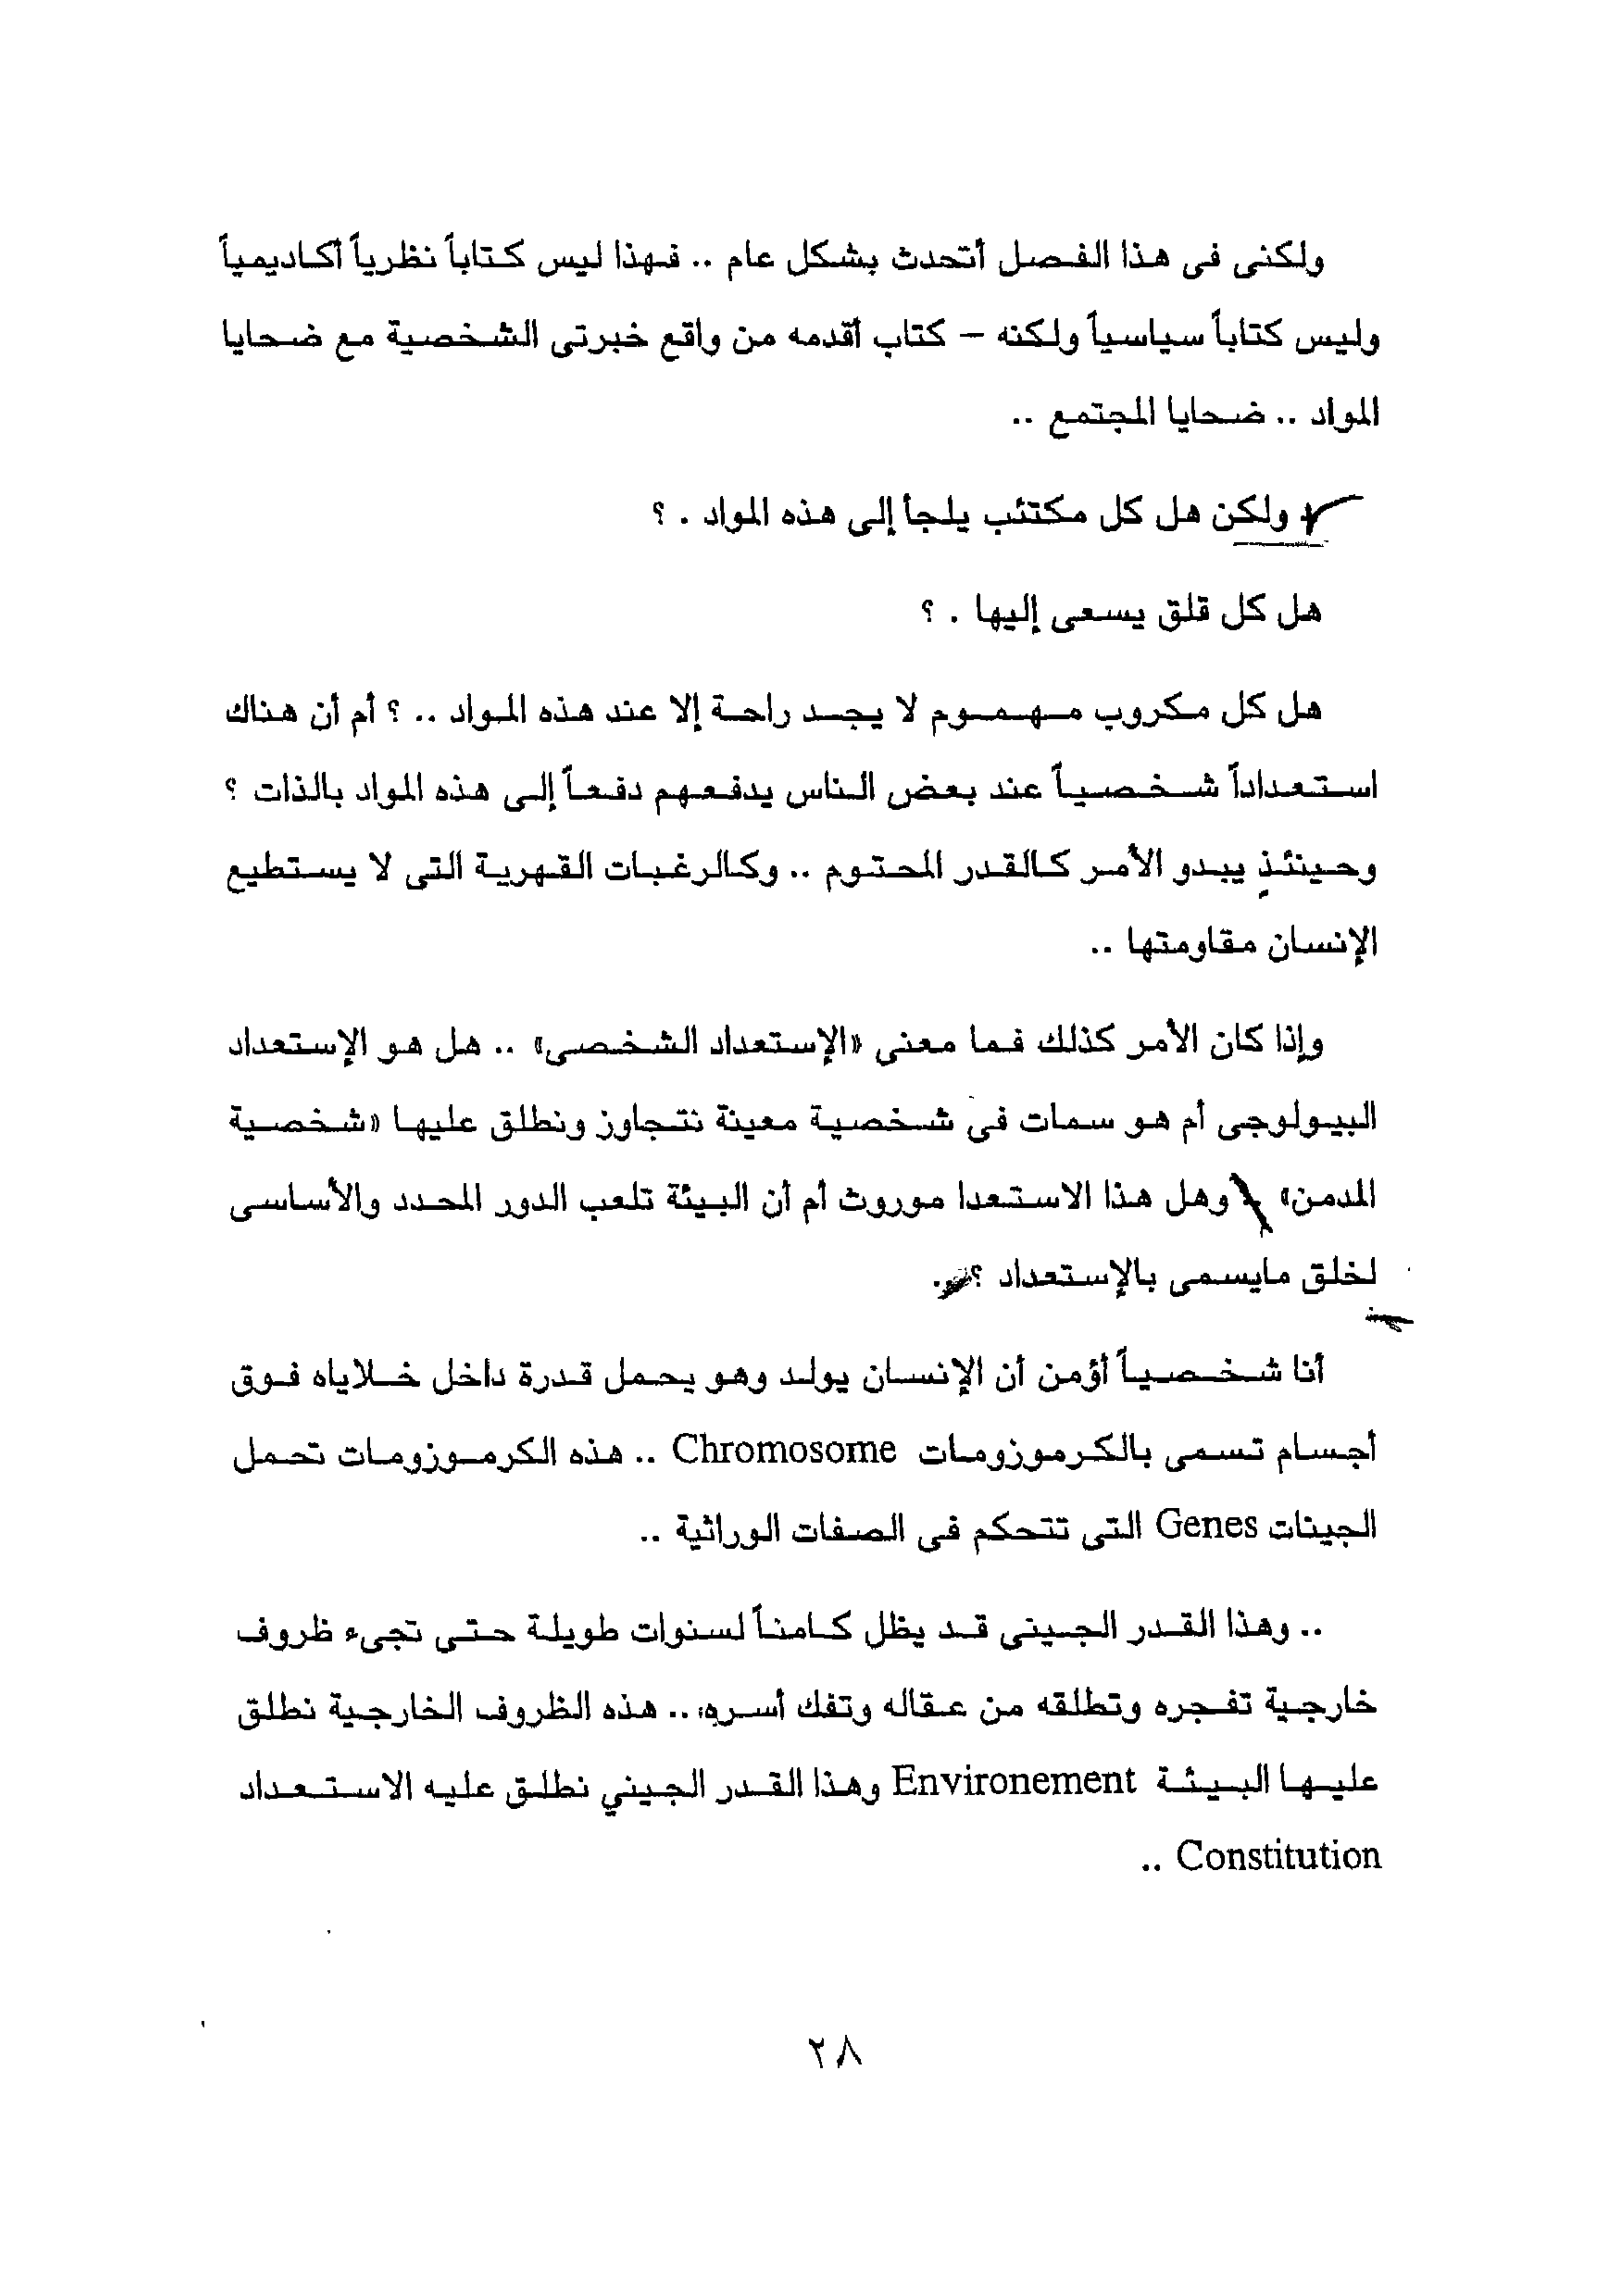 ولكنى فى هذا الفصل أتحدث بشكل عام .. فهذا ليس كتاباً نظرياً أكاديمياً
وليس كتاباً سياسياً ولكنه – كتاب أقدمه من واقع خبرتى الشخصية مع ضحايا
المواد .. ضحايا المجتمع ..
ولكن هل كل مكتئب يلجأ إلى هذه المواد . ؟
هل كل قلق يسعى إليها . ؟
هل كل مكروب مهموم لا يجد راحة إلا عند هذه المواد .. ؟ أم أن هناك
استعداداً شخصياً عند بعض الناس يدفعهم دفعاً إلى هذه المواد بالذات ؟
وحينئذٍ يبدو الأمر كالقدر المحتوم .. وكالرغبات القهرية التى لا يستطيع
الإنسان مقاومتها ..
وإذا كان الأمر كذلك فما معنى «الإستعداد الشخصى» .. هل هو الإستعداد
البيولوجى أم هو سمات فى شخصية معينة نتجاوز ونطلق عليها «شخصية
المدمن» وهل هذا الاستعدا موروث أم أن البيئة تلعب الدور المحدد والأساسى
لخلق مايسمى بالإستعداد ؟ .
أنا شخصياً أؤمن أن الإنسان يولد وهو يحمل قدرة داخل خلاياه فوق
أجسام تسمى بالكرموزومات Chromosome .. هذه الكرموزومات تحمل
الجينات Genes التى تتحكم فى الصفات الوراثية ..
.. وهذا القدر الجينى قد يظل كامناً لسنوات طويلة حتى تجىء ظروف
خارجية تفجره وتطلقه من عقاله وتفك أسره، .. هذه الظروف الخارجية نطلق
عليها البيئة Environement وهذا القدر الجيني نطلق عليه الاستعداد
Constitution ..
٢٨